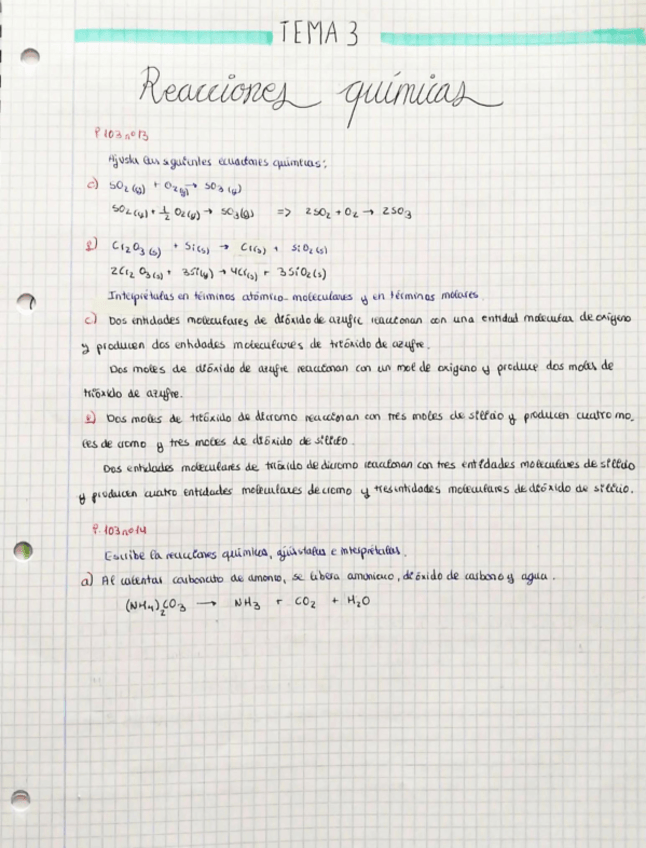 TEMA 3
Reacciones químicas
P 103 nº 13
Ajusta las siguientes ecuaciones químicas:
c) SO₂ (g) + O₂ (g) → SO₃ (g)
SO₂ (g) + 1/2 O₂ (g) → SO₃ (g) => 2SO₂ + O₂ → 2SO₃
e) Cr₂O₃ (s) + Si (s) → Cr (s) + SiO₂ (s)
2Cr₂O₃ (s) + 3Si (s) → 4Cr (s) + 3SiO₂ (s)
Interprétalas en términos atómico-moleculares y en términos molares
c) Dos entidades moleculares de dióxido de azufre reaccionan con una entidad molecular de oxígeno
y producen dos entidades moleculares de trióxido de azufre.
Dos moles de dióxido de azufre reaccionan con un mol de oxigeno y produce dos moles de
trióxido de azufre.
e) Dos moles de trióxido de dicromo reaccionan con tres moles de silicio y producen cuatro mo_
les de cromo y tres moles de dióxido de silicio.
Dos entidades moleculares de trióxido de dicromo reaccionan con tres entidades moleculares de silicio
y producen cuatro entidades moleculares de cromo y tres entidades moleculares de dióxido de silicio.
P. 103 nº 14
Escribe la reacciones química, ajústalas e interprétalas.
a) Al calentar carbonato de amonio, se libera amoniaco, dióxido de carbono y agua.
(NH₄)₂CO₃ → NH₃ + CO₂ + H₂O